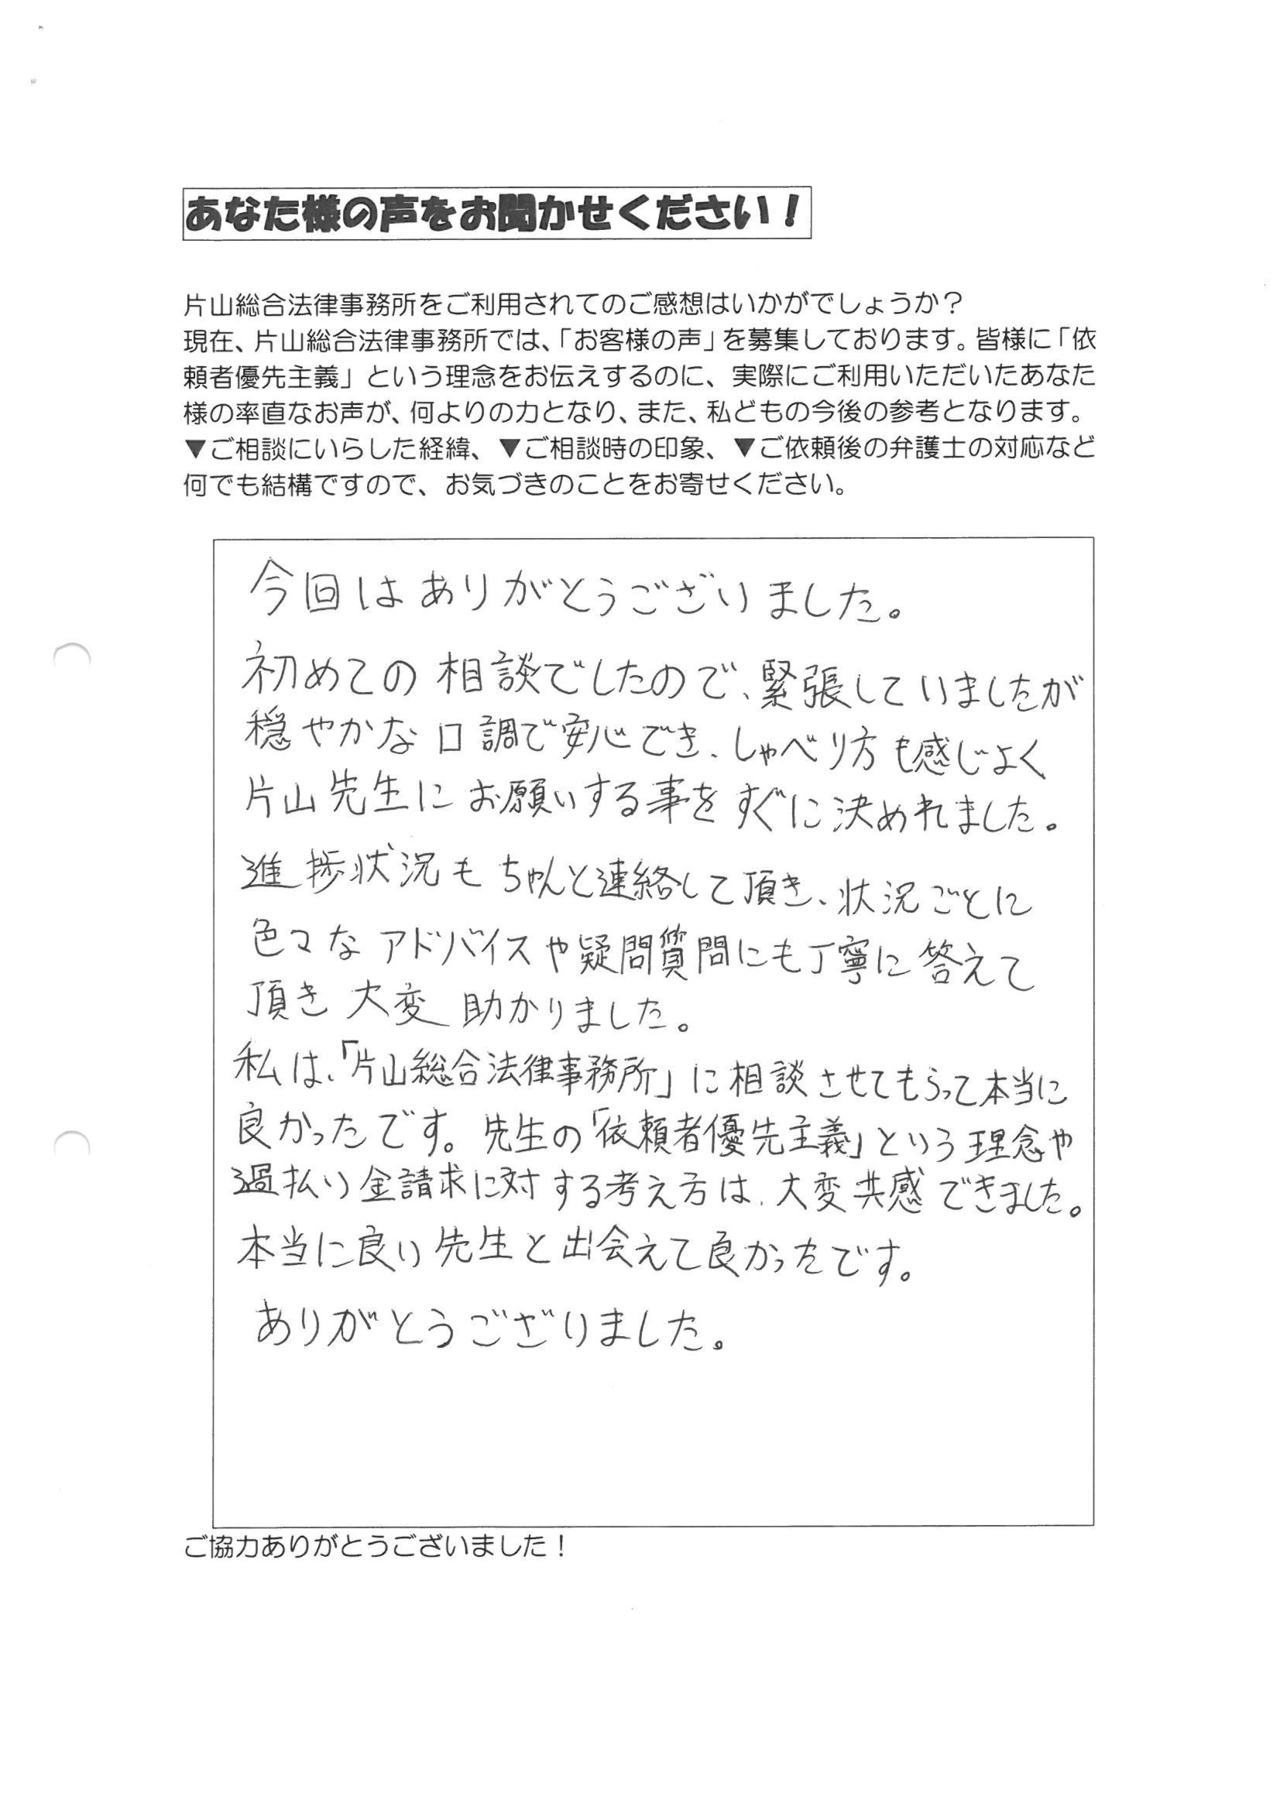 あなた様の声をお聞かせください！
片山総合法律事務所をご利用されてのご感想はいかがでしょうか？
現在、片山総合法律事務所では、「お客様の声」を募集しております。皆様に「依
頼者優先主義」という理念をお伝えするのに、実際にご利用いただいたあなた
様の率直なお声が、何よりの力となり、また、私どもの今後の参考となります。
▼ご相談にいらした経緯、▼ご相談時の印象、▼ご依頼後の弁護士の対応など
何でも結構ですので、お気づきのことをお寄せください。
今回はありがとうございました。
初めての相談でしたので、緊張していましたが
穏やかな口調で安心でき、しゃべり方も感じよく
片山先生にお願いする事をすぐに決めれました。
進捗状況もちゃんと連絡して頂き、状況ごとに
色々なアドバイスや疑問質問にも丁寧に答えて
頂き大変助かりました。
私は、「片山総合法律事務所」に相談させてもらって本当に
良かったです。先生の「依頼者優先主義」という理念や
過払い金請求に対する考え方は、大変共感できました。
本当に良い先生と出会えて良かったです。
ありがとうございました。
ご協力ありがとうございました！